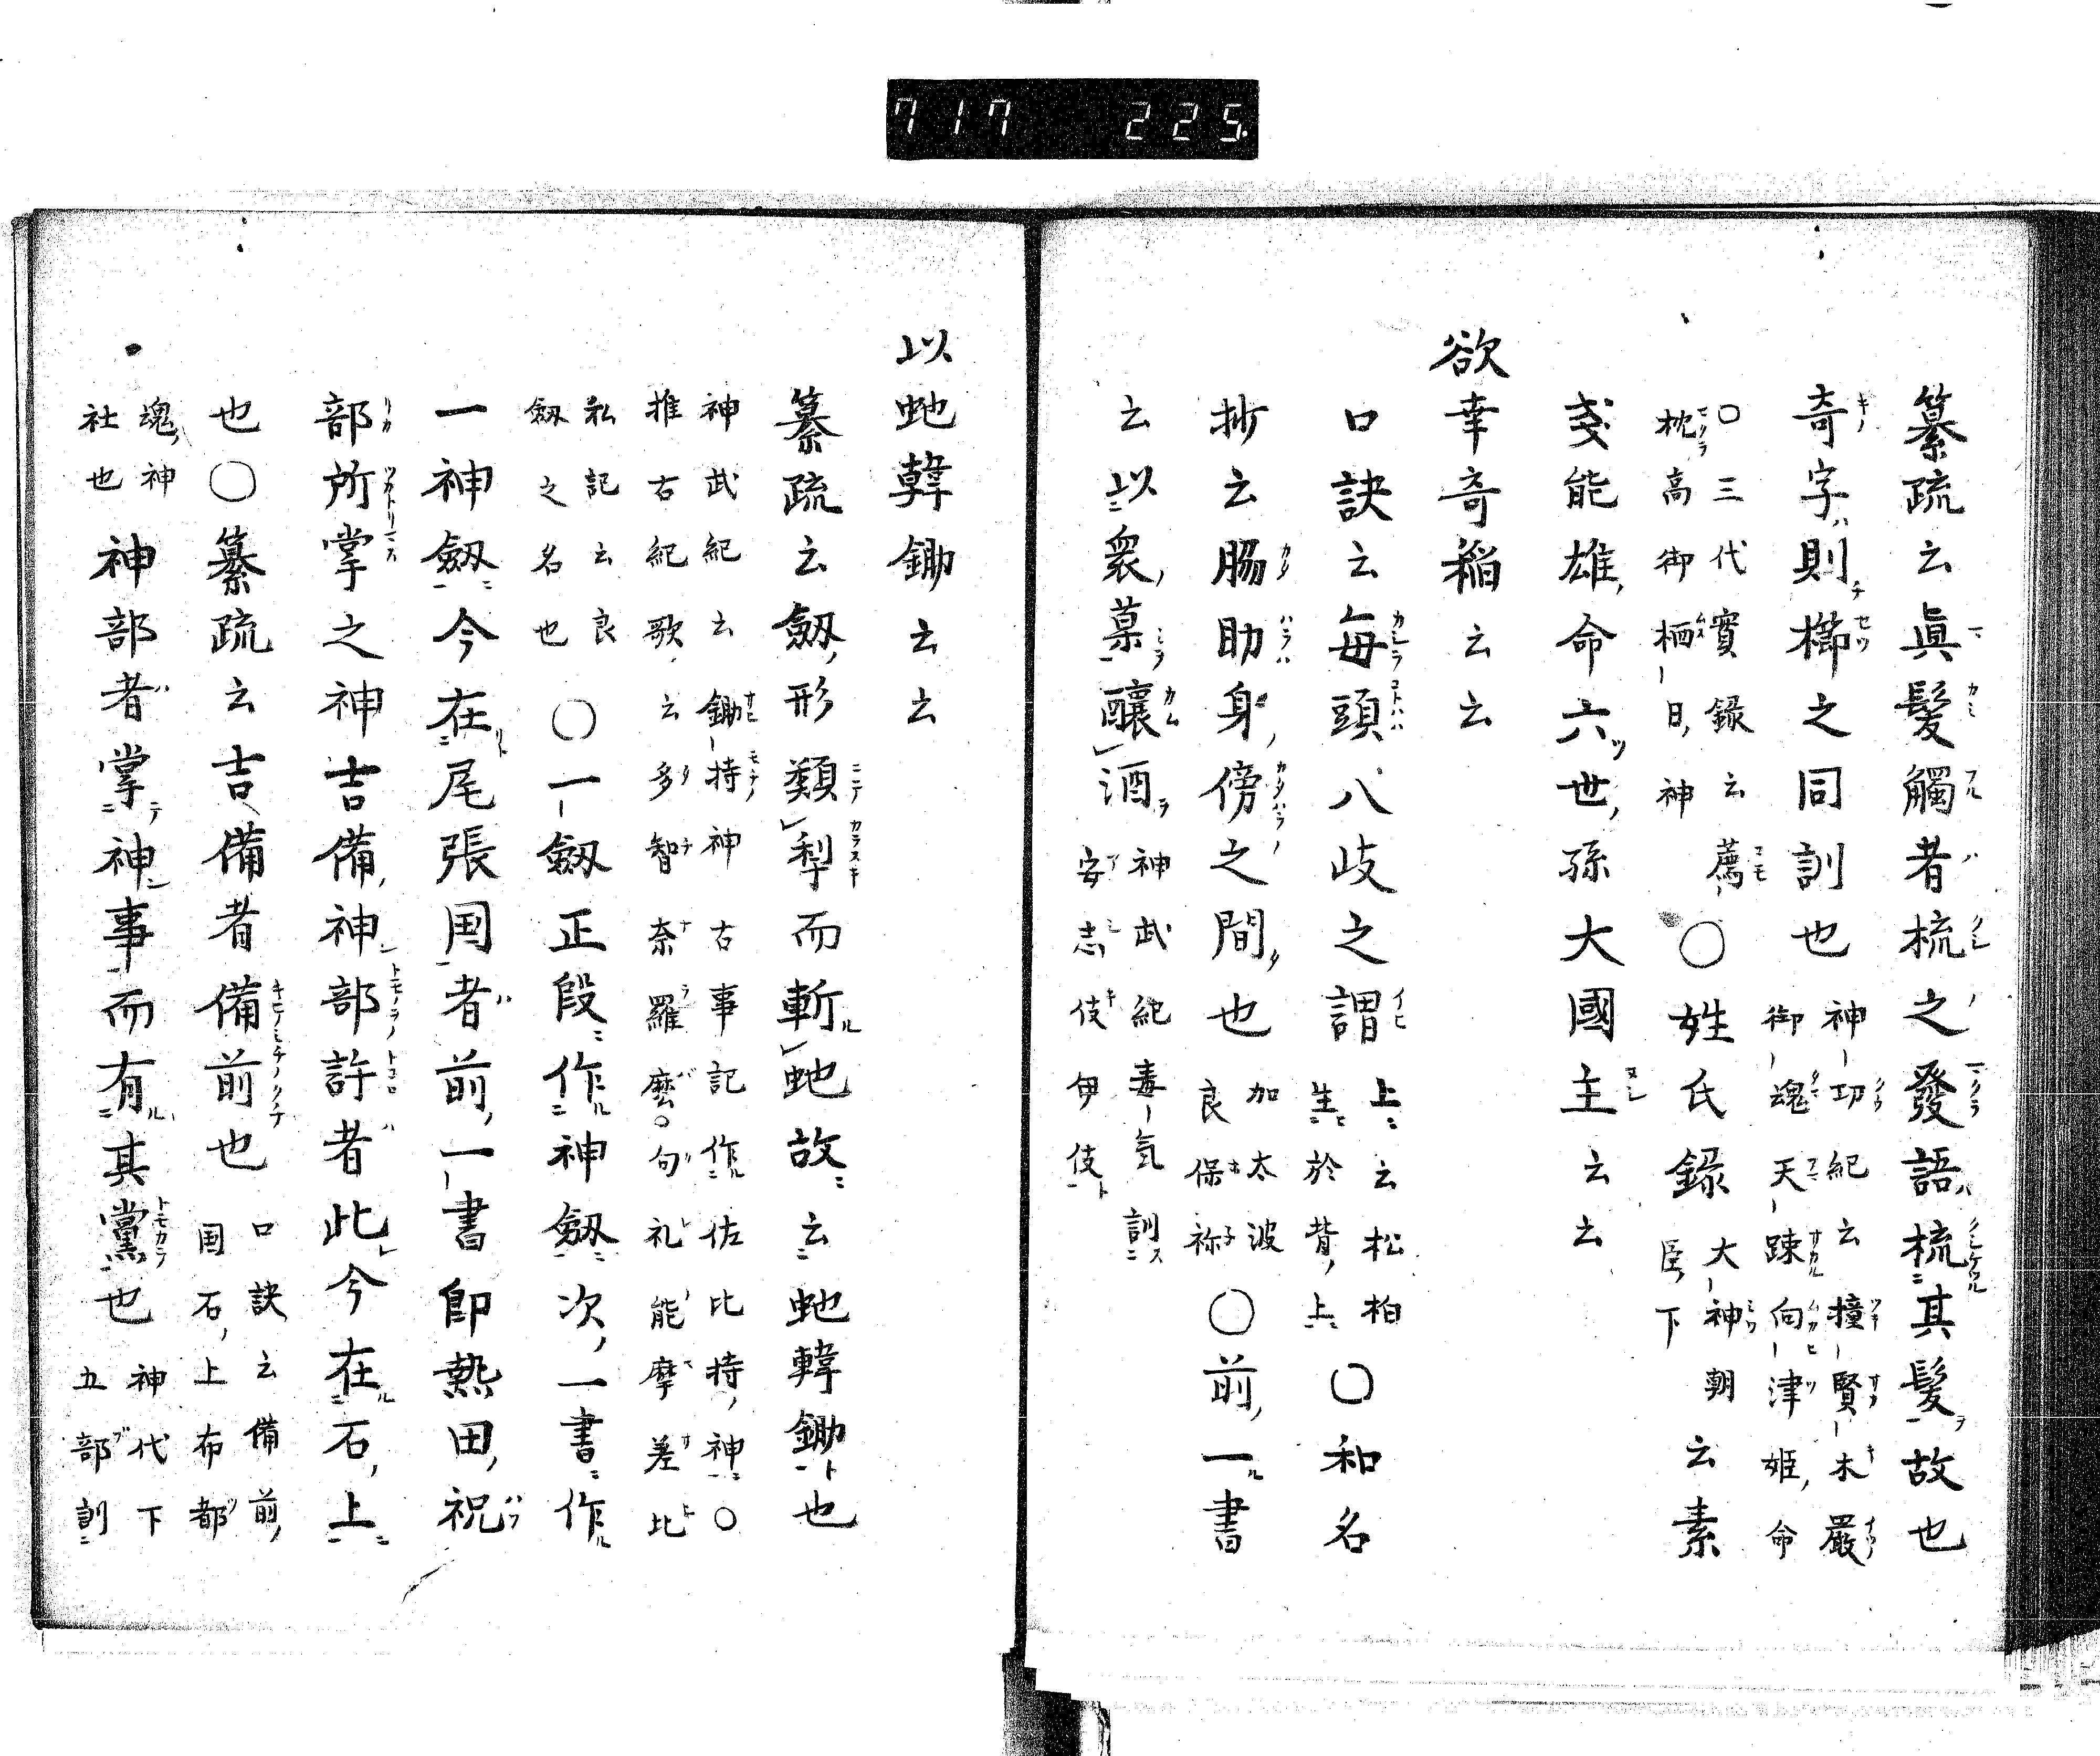 717 225.
纂疏云眞髪觸者梳之發語梳其髪故也
奇字則櫛之同訓也 神功紀云撞賢木嚴
御魂天疎向津姫命
○三代實錄云薦
枕高御栖日神 ○姓氏錄 大神朝
臣下 云素
戔能雄命六世孫大國主云云
欲幸奇稲云云
口訣云毎頭八岐之謂 上云松柏
生於背上 ○和名
抄云膓肋身傍之間也 加太波
良保祢 ○前一書
云以衆菓釀酒 神武紀毒氣訓
安志伎伊伎
以虵韓鋤云云
纂疏云劔形類犁而斬虵故云虵韓鋤也
神武紀云鋤持神古事記作佐比持神○
推古紀歌云多智奈羅麽句礼能摩差比
私記云良
劔之名也 ○一劔正段作神劔次一書作
一神劔今在尾張国者前一書即熱田祝
部所掌之神吉備神部許者此今在石上
也○纂疏云吉備者備前也 口訣云備前
国石上布都
魂神
社也 神部者掌神事而有其黨也 神代下
五部訓